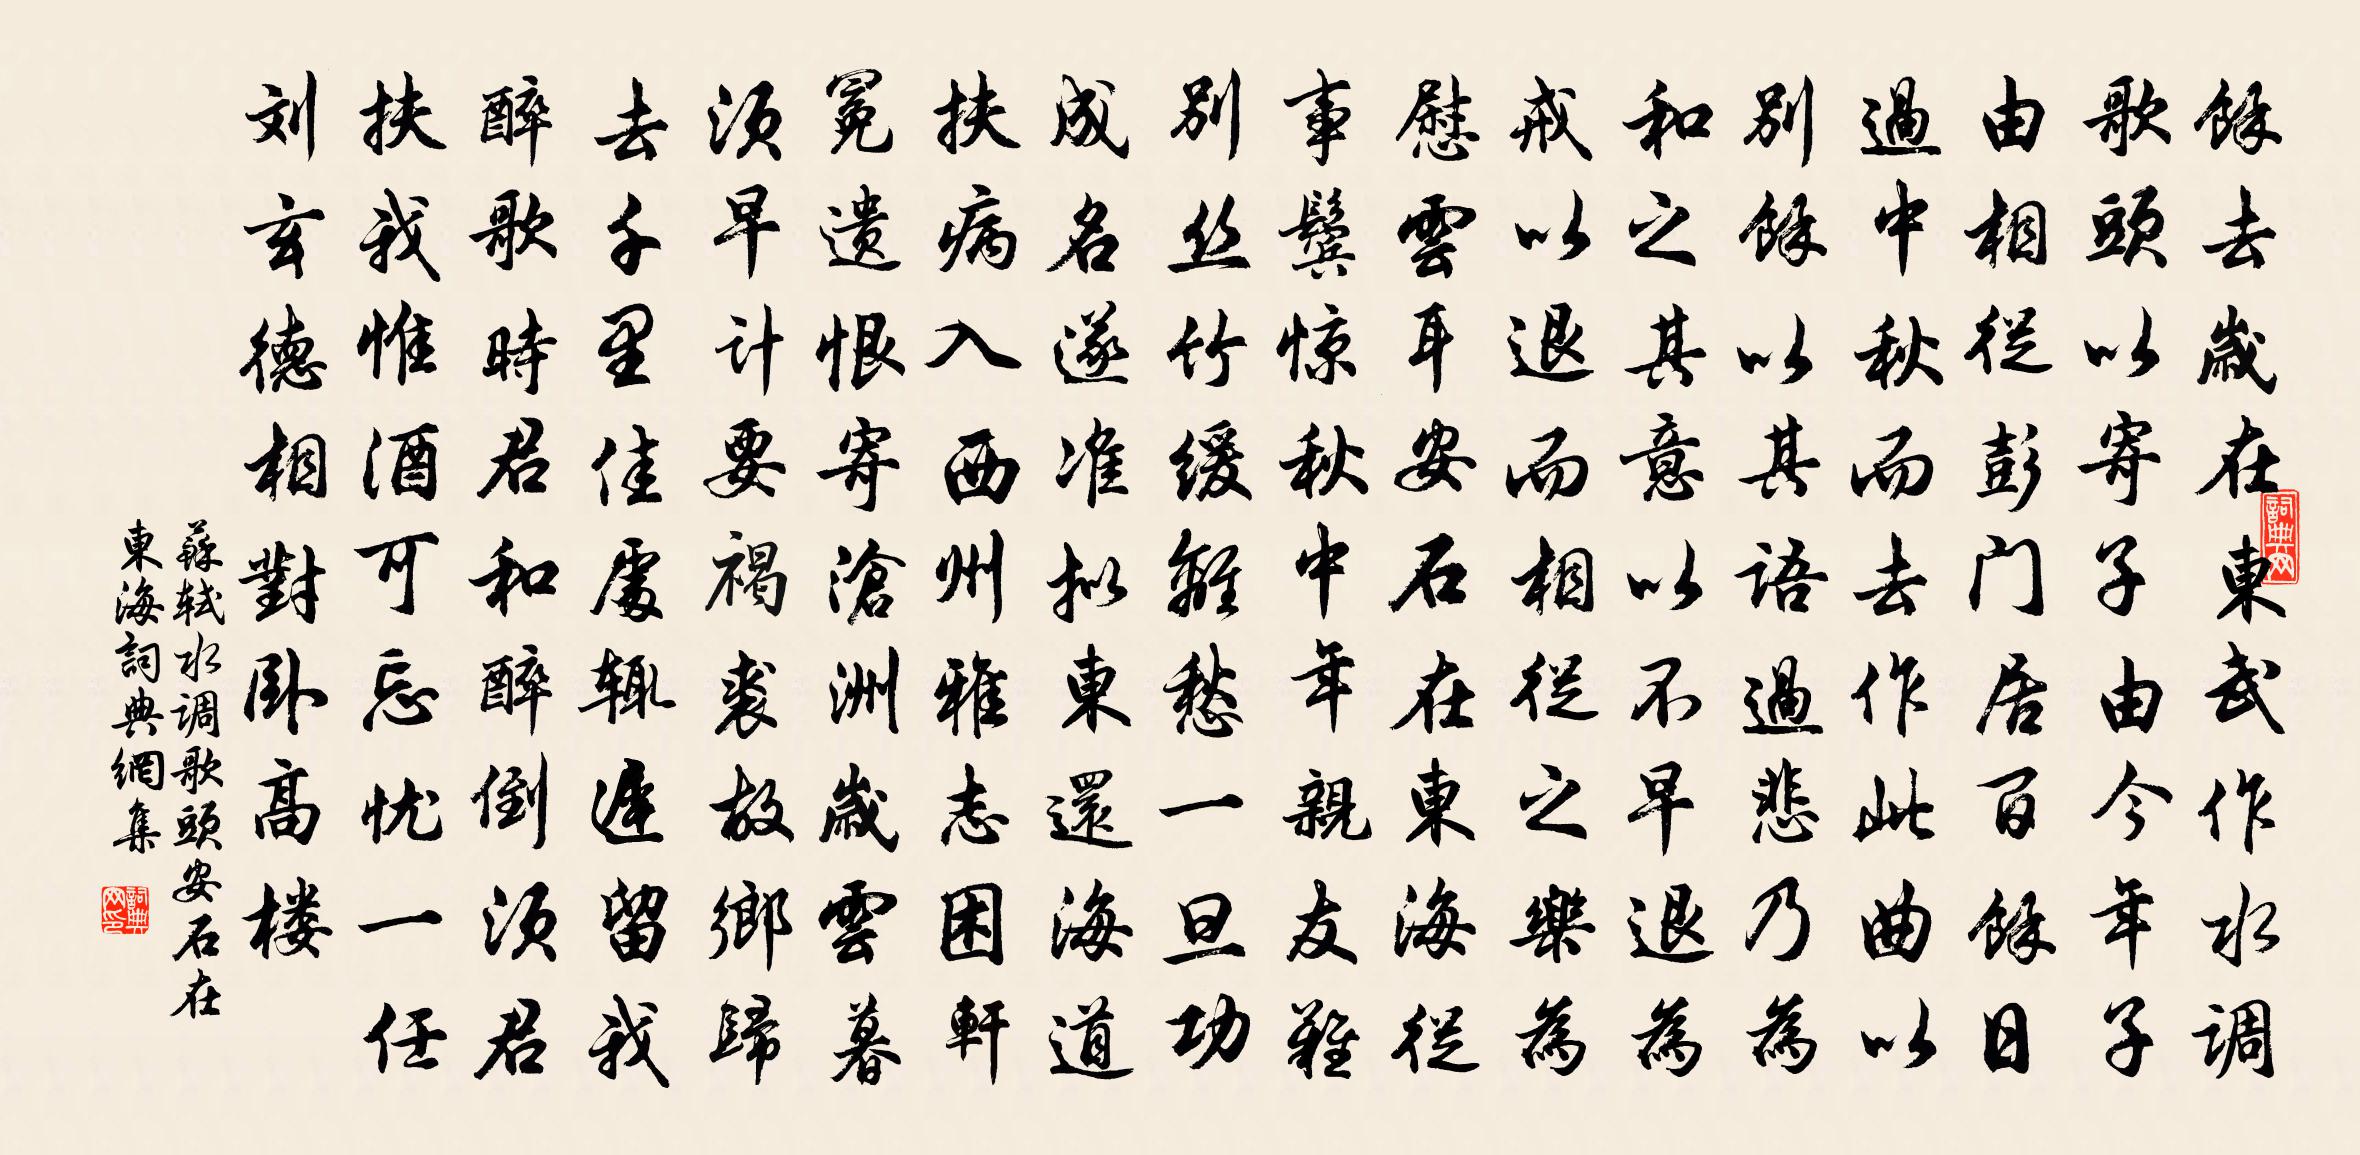 餘去歲在東武作水调
歌頭以寄子由今年子
由相從彭门居百餘日
過中秋而去作此曲以
别餘以其语過悲乃為
和之其意以不早退為
戒以退而相從之樂為
慰雲耳安石在東海從
事鬓惊秋中年親友難
别丝竹缓離愁一旦功
成名遂准拟東還海道
扶病入西州雅志困軒
冕遗恨寄滄洲歲雲暮
须早计要褐裘故鄉歸
去千里佳處辄遲留我
醉歌時君和醉倒须君
扶我惟酒可忘忧一任
刘玄德相對卧高楼
蘇轼水调歌頭安石在
東海詞典網集
詞典网
詞典网印